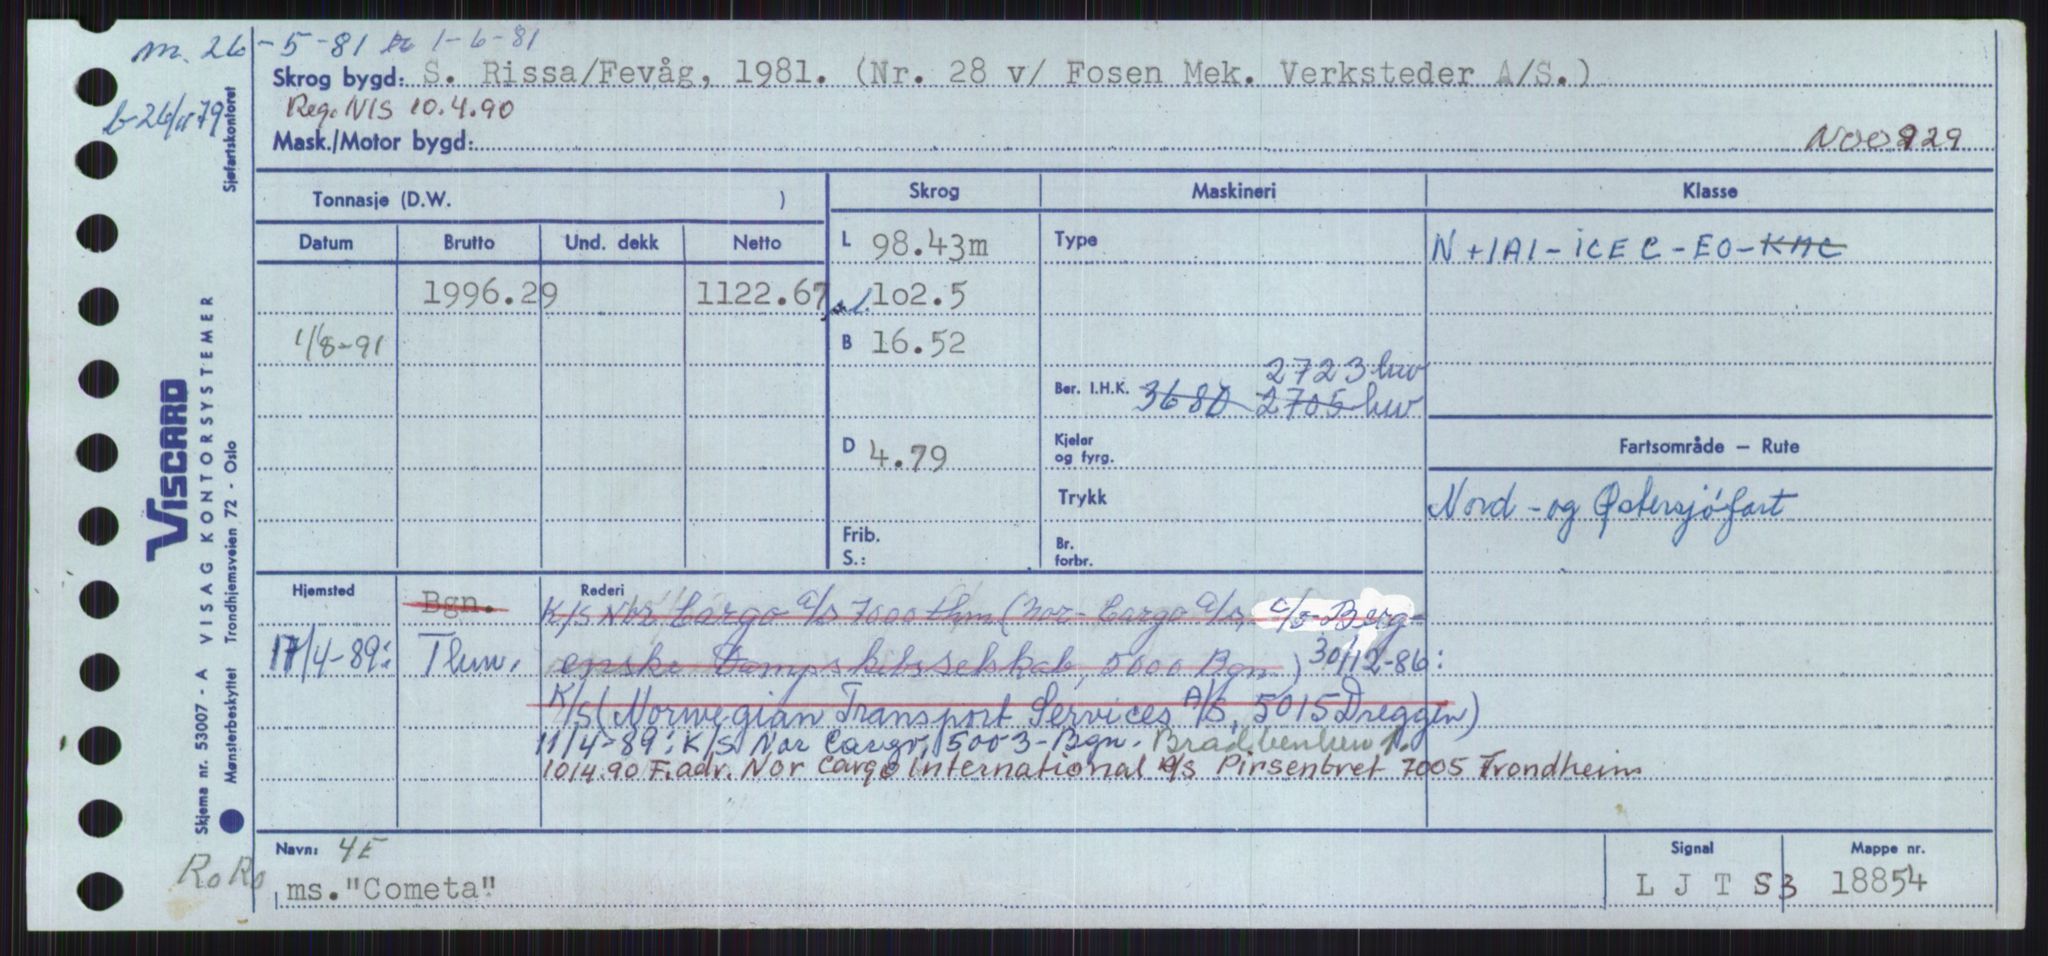 m. 26-5-81 1-6-81
Skrog bygd: S. Rissa/Fevåg, 1981. (Nr. 28 v/ Fosen Mek. Verksteder A/S.)
b 26/11 79
Reg. NIS 10.4.90
Mask./Motor bygd: N00929
Sjøfartskontoret
Tonnasje (D.W. ) Skrog Maskineri Klasse
Datum Brutto Und. dekk Netto L 98.43m Type N +1A1 - ICE C - EO - KMC
1996.29 1122.67 102.5
1/8-91 B 16.52
2723 hw
Ber. I.H.K. 3680 2705 hw
D 4.79 Kjelar og fyrg. Fartsområde — Rute
Trykk Nord - og Østersjøfart
Frib. S.: Br. forbr.
Hjemsted Rederi
Bgn. K/S Nor Cargo A/S 7000 Thm (Nor-Cargo A/S, c/o Berg-
17/4-89: Thm. enske Dampskibsselskab, 5000 Bgn) 30/12-86:
K/S (Norwegian Transport Services A/S, 5015 Dreggen)
11/4-89: K/S Nor Cargo, 5003-Bgn. Bradbenken 1.
10/4.90 F.adr. Nor Cargo International A/S Pirsenteret 7005 Trondheim
Navn: 4E Signal Mappe nr.
RoRo ms."Cometa" L J T S 3 18854
VISCARD
Skjema nr. 53007 - A VISAG KONTORSYSTEMER
Mønsterbeskyttet Trondhjemsveien 72 - Oslo